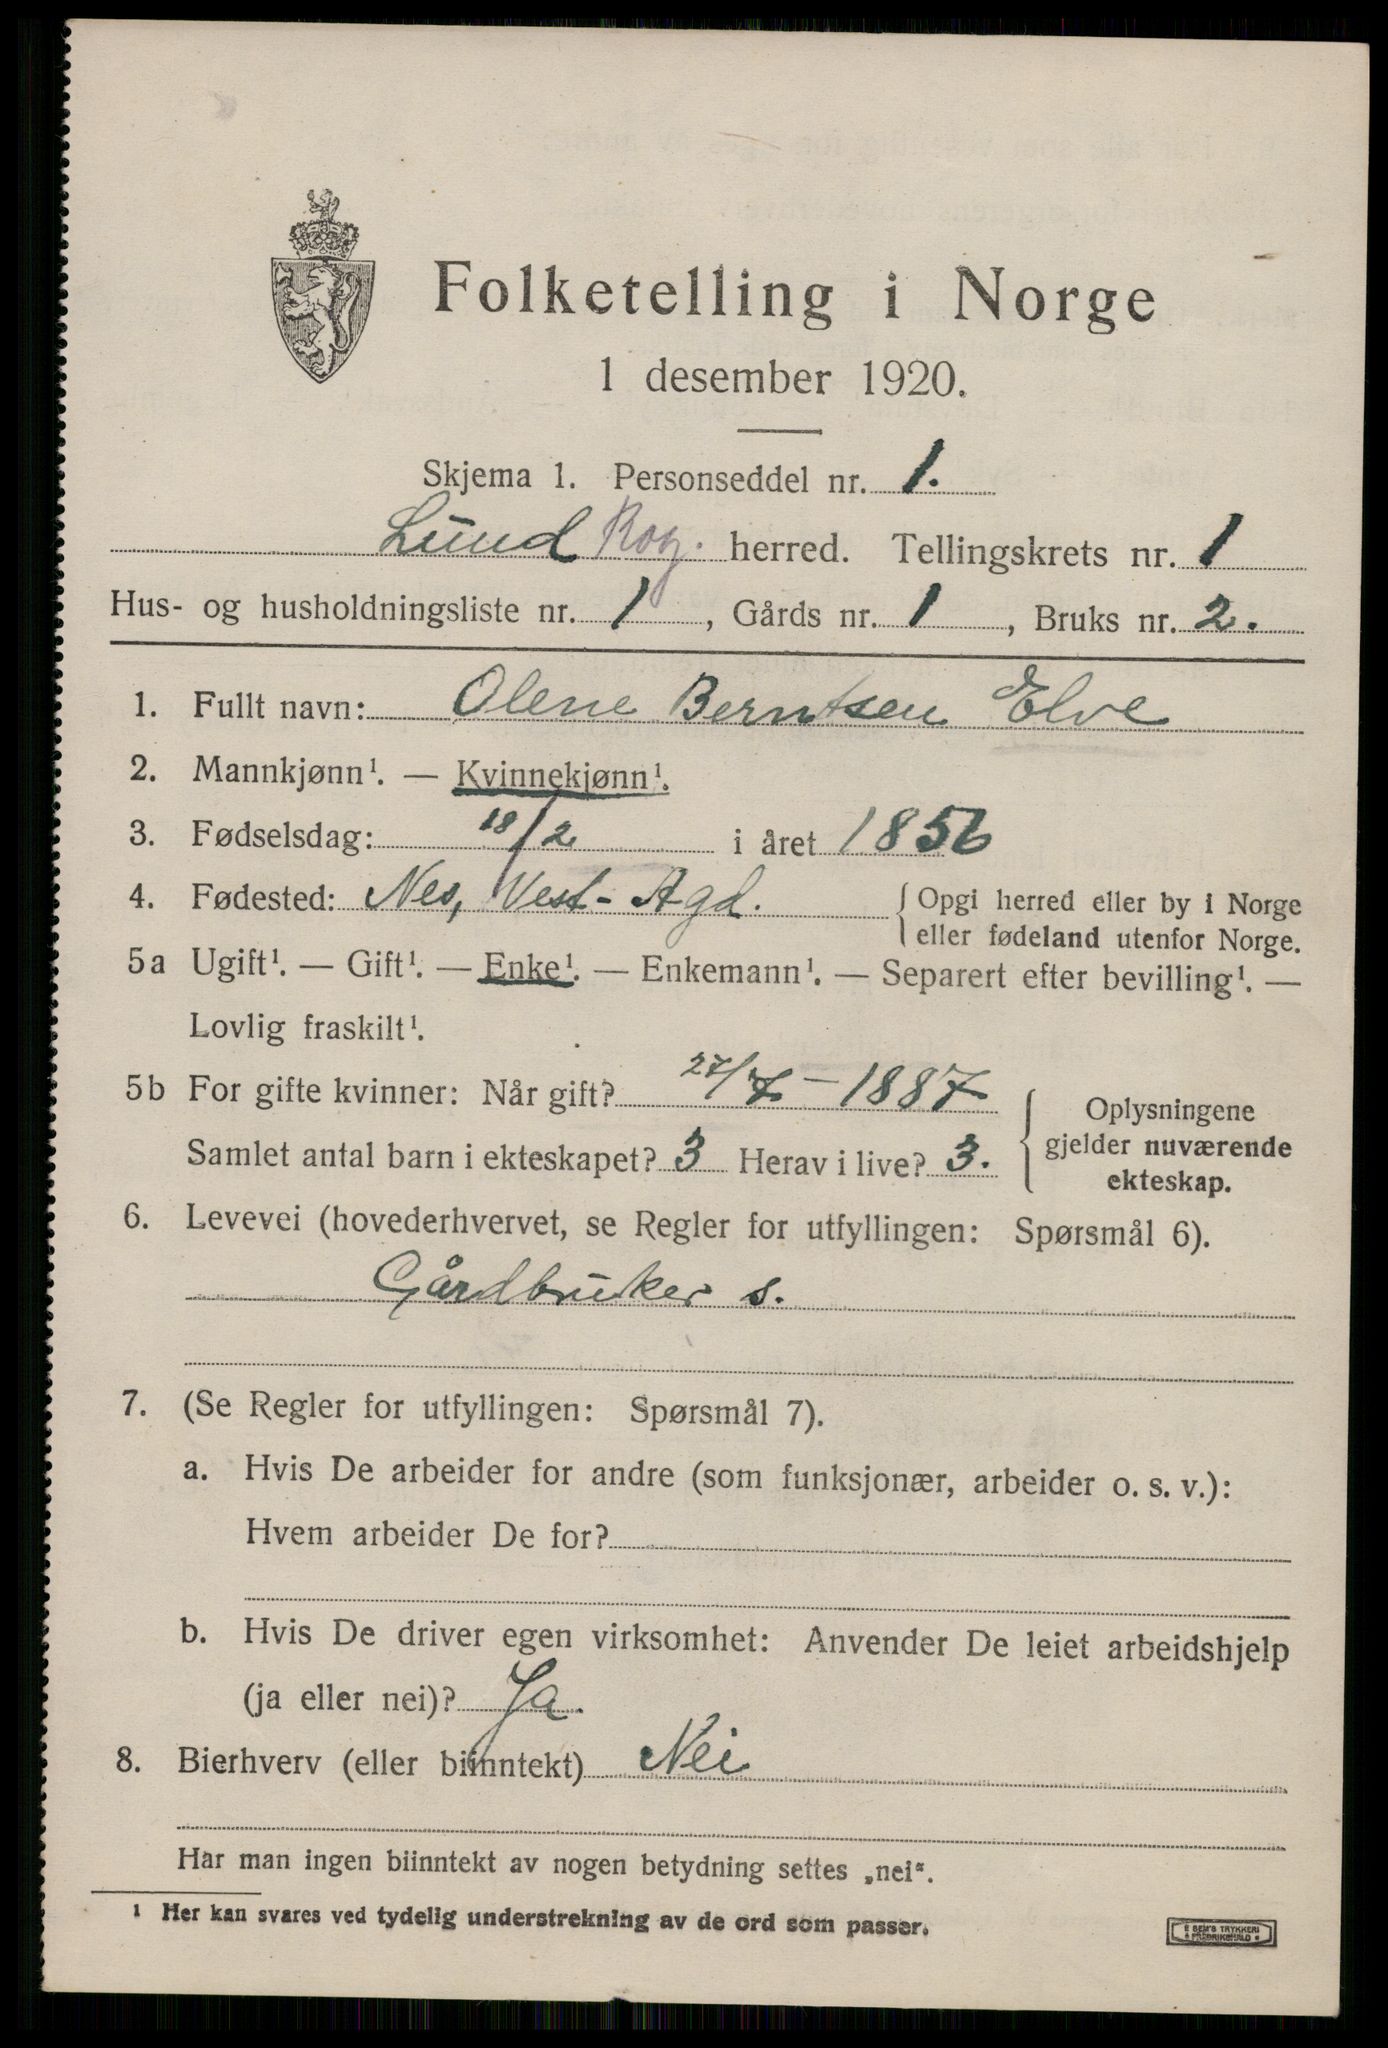 Folketelling i Norge
1 desember 1920.
Skjema 1. Personseddel nr. 1.
Lund Rog. herred. Tellingskrets nr. 1
Hus- og husholdningsliste nr. 1, Gårds nr. 1, Bruks nr. 2.
1. Fullt navn: Olene Berntsen Elve
2. Mannkjønn¹. — Kvinnekjønn¹.
3. Fødselsdag: 18/2 i året 1856
4. Fødested: Nes, Vest-Agd. { Opgi herred eller by i Norge
eller fødeland utenfor Norge.
5a Ugift¹. — Gift¹. — Enke¹. — Enkemann¹. — Separert efter bevilling¹. —
Lovlig fraskilt¹.
5b For gifte kvinner: Når gift? 27/7 - 1887
Samlet antal barn i ekteskapet? 3 Herav i live? 3.
Oplysningene
gjelder nuværende
ekteskap.
6. Levevei (hovederhvervet, se Regler for utfyllingen: Spørsmål 6).
Gårdbruker s.
7. (Se Regler for utfyllingen: Spørsmål 7).
a. Hvis De arbeider for andre (som funksjonær, arbeider o. s. v.):
Hvem arbeider De for?
b. Hvis De driver egen virksomhet: Anvender De leiet arbeidshjelp
(ja eller nei)? Ja.
8. Bierhverv (eller biinntekt) Nei
Har man ingen biinntekt av nogen betydning settes „nei“.
¹ Her kan svares ved tydelig understrekning av de ord som passer.
E SEM'S TRYKKERI
FREDRIKSHALD